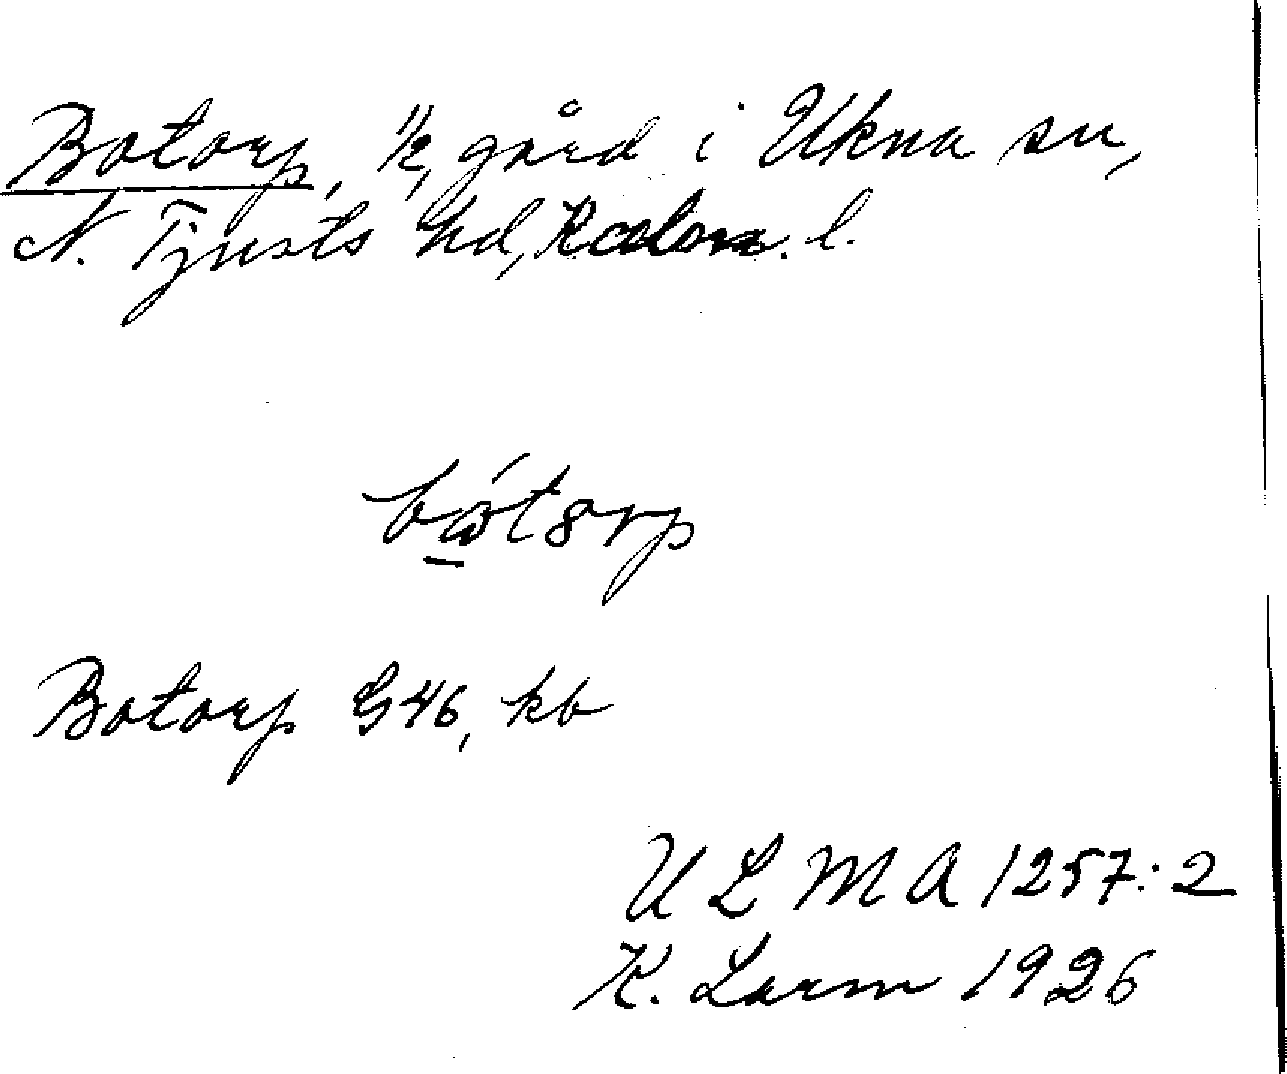 Botorp, 1/2, gård i Ukna sn,
N. Tjusts hd, Kalm. l.
Botorp G46, kb
ULMA 1257:2
K. Larm 1926